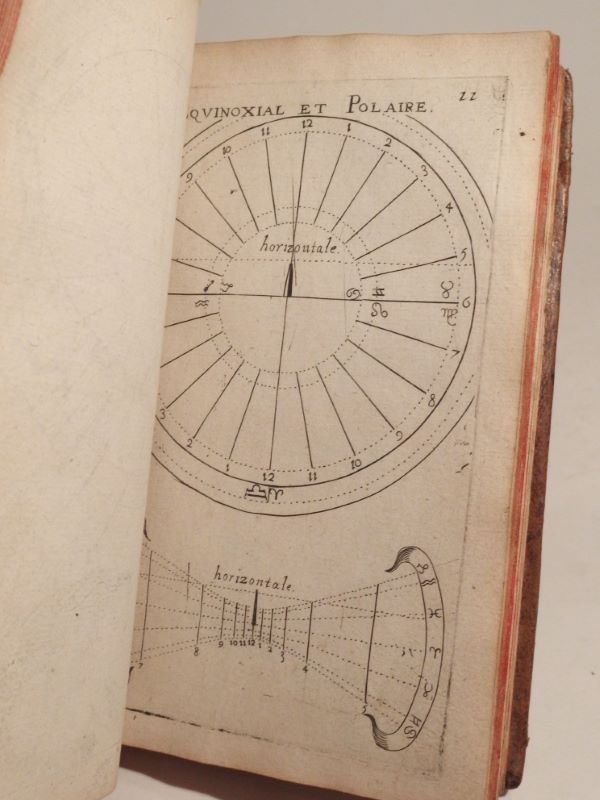 QVINOXIAL ET POLAIRE. 11
12
11 1
10 2
9 3
4
horizontale.
5
♑ ♋ ♊ ♉
6
♒ ♌ ♍
7
8
3 9
2 10
1 12 11
♎ ♈
horizontale.
♑ ♒
♓
♈
♉
♊ ♋
7 8 9 10 11 12 1 2 3 4 5